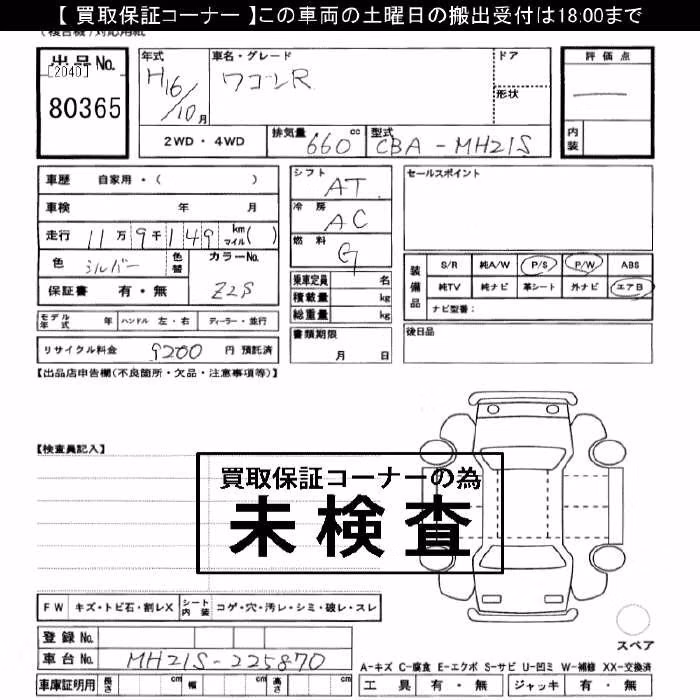 【 買取保証コーナー 】この車両の土曜日の搬出受付は18:00まで
(複合機)対応用紙
出品No.
[2040]
80365
年式
H16/10月
車名・グレード
ワゴンR
ドア
形状
評価点
内装
2WD・4WD
排気量 660 cc
型式 CBA-MH21S
車歴 自家用・( )
車検 年 月
走行 11万9千149 km マイル( )
色 シルバー 色替
カラーNo. Z2S
保証書 有・無
モデル年式 年 ハンドル 左・右 ディーラー・並行
リサイクル料金 9200 円 預託済
シフト AT
冷房 AC
燃料 G
乗車定員 名
積載量 kg
総重量 kg
書類期限
月 日
セールスポイント
装備品
S/R 純A/W P/S P/W ABS
純TV 純ナビ 革シート 外ナビ エアB
ナビ型番:
後日品
【出品店申告欄(不良箇所・欠品・注意事項等)】
【検査員記入】
買取保証コーナーの為
未検査
FW キズ・トビ石・割レX シート内装 コゲ・穴・汚レ・シミ・破レ・スレ
登録No.
車台No. MH21S-225870
車庫証明用 長さ cm 幅 cm 高さ cm
スペア
A-キズ C-腐食 E-エクボ S-サビ U-凹ミ W-補修 XX-交換済
工具 有・無 ジャッキ 有・無